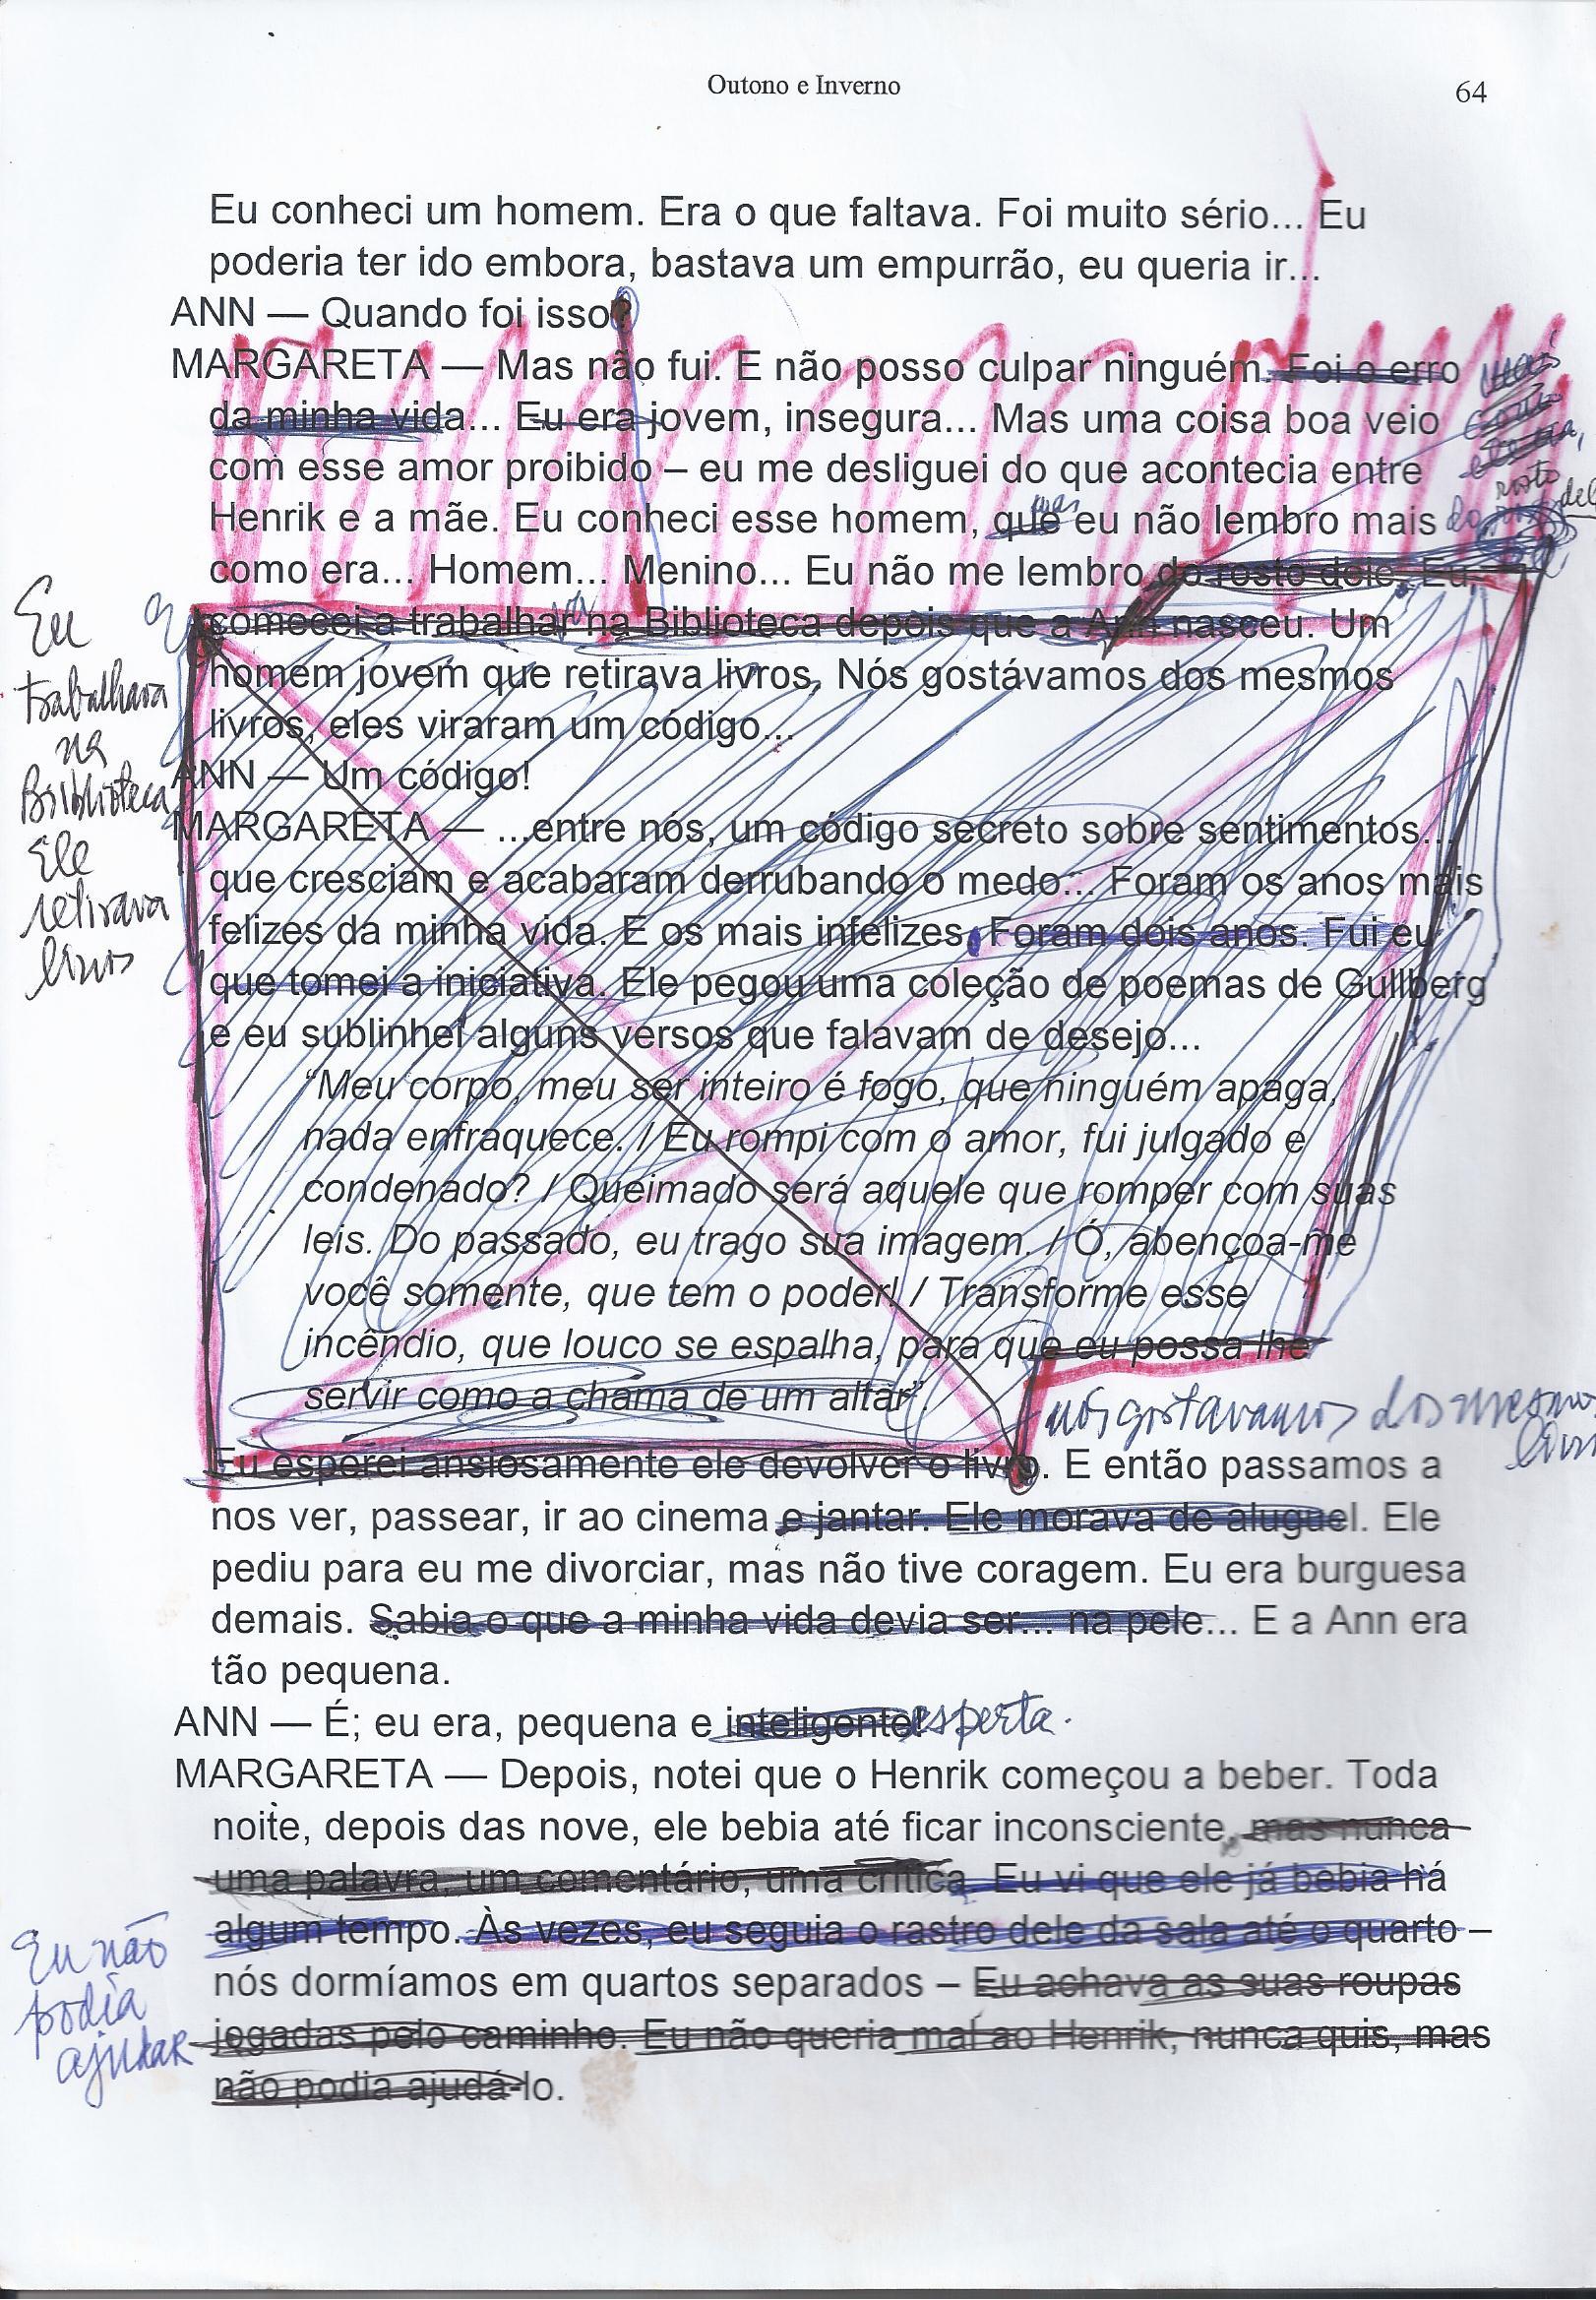 Outono e Inverno
64
Eu conheci um homem. Era o que faltava. Foi muito sério... Eu
poderia ter ido embora, bastava um empurrão, eu queria ir...
ANN — Quando foi isso?
MARGARETA — Mas não fui. E não posso culpar ninguém. Foi o erro
da minha vida... Eu era jovem, insegura... Mas uma coisa boa veio
com esse amor proibido – eu me desliguei do que acontecia entre
rosto
del
mas
Henrik e a mãe. Eu conheci esse homem, que eu não lembro mais do
como era... Homem... Menino... Eu não me lembro do rosto dele. Eu
comecei a trabalhar na Biblioteca depois que a Ann nasceu. Um
homem jovem que retirava livros. Nós gostávamos dos mesmos
livros, eles viraram um código...
ANN — Um código!
MARGARETA — ...entre nós, um código secreto sobre sentimentos...
que cresciam e acabaram derrubando o medo... Foram os anos mais
felizes da minha vida. E os mais infelizes. Foram dois anos. Fui eu
que tomei a iniciativa. Ele pegou uma coleção de poemas de Gullberg
e eu sublinhei alguns versos que falavam de desejo...
“Meu corpo, meu ser inteiro é fogo, que ninguém apaga,
nada enfraquece. / Eu rompi com o amor, fui julgado e
condenado? / Queimado será aquele que romper com suas
leis. Do passado, eu trago sua imagem. / Ó, abençoa-me
você somente, que tem o poder! / Transforme esse
incêndio, que louco se espalha, para que eu possa lhe
servir como a chama de um altar”.
Eu
trabalhava
na
Biblioteca
Ele
retirava
livros
nós gostávamos dos mesmo
livr
Eu esperei ansiosamente ele devolver o livro. E então passamos a
nos ver, passear, ir ao cinema e jantar. Ele morava de aluguel. Ele
pediu para eu me divorciar, mas não tive coragem. Eu era burguesa
demais. Sabia o que a minha vida devia ser... na pele... E a Ann era
tão pequena.
ANN — É; eu era, pequena e inteligente! esperta.
MARGARETA — Depois, notei que o Henrik começou a beber. Toda
noite, depois das nove, ele bebia até ficar inconsciente, mas nunca
uma palavra, um comentário, uma crítica. Eu vi que ele já bebia há
algum tempo. Às vezes, eu seguia o rastro dele da sala até o quarto –
nós dormíamos em quartos separados – Eu achava as suas roupas
jogadas pelo caminho. Eu não queria mal ao Henrik, nunca quis, mas
não podia ajudá-lo.
Eu não
podia
ajudar